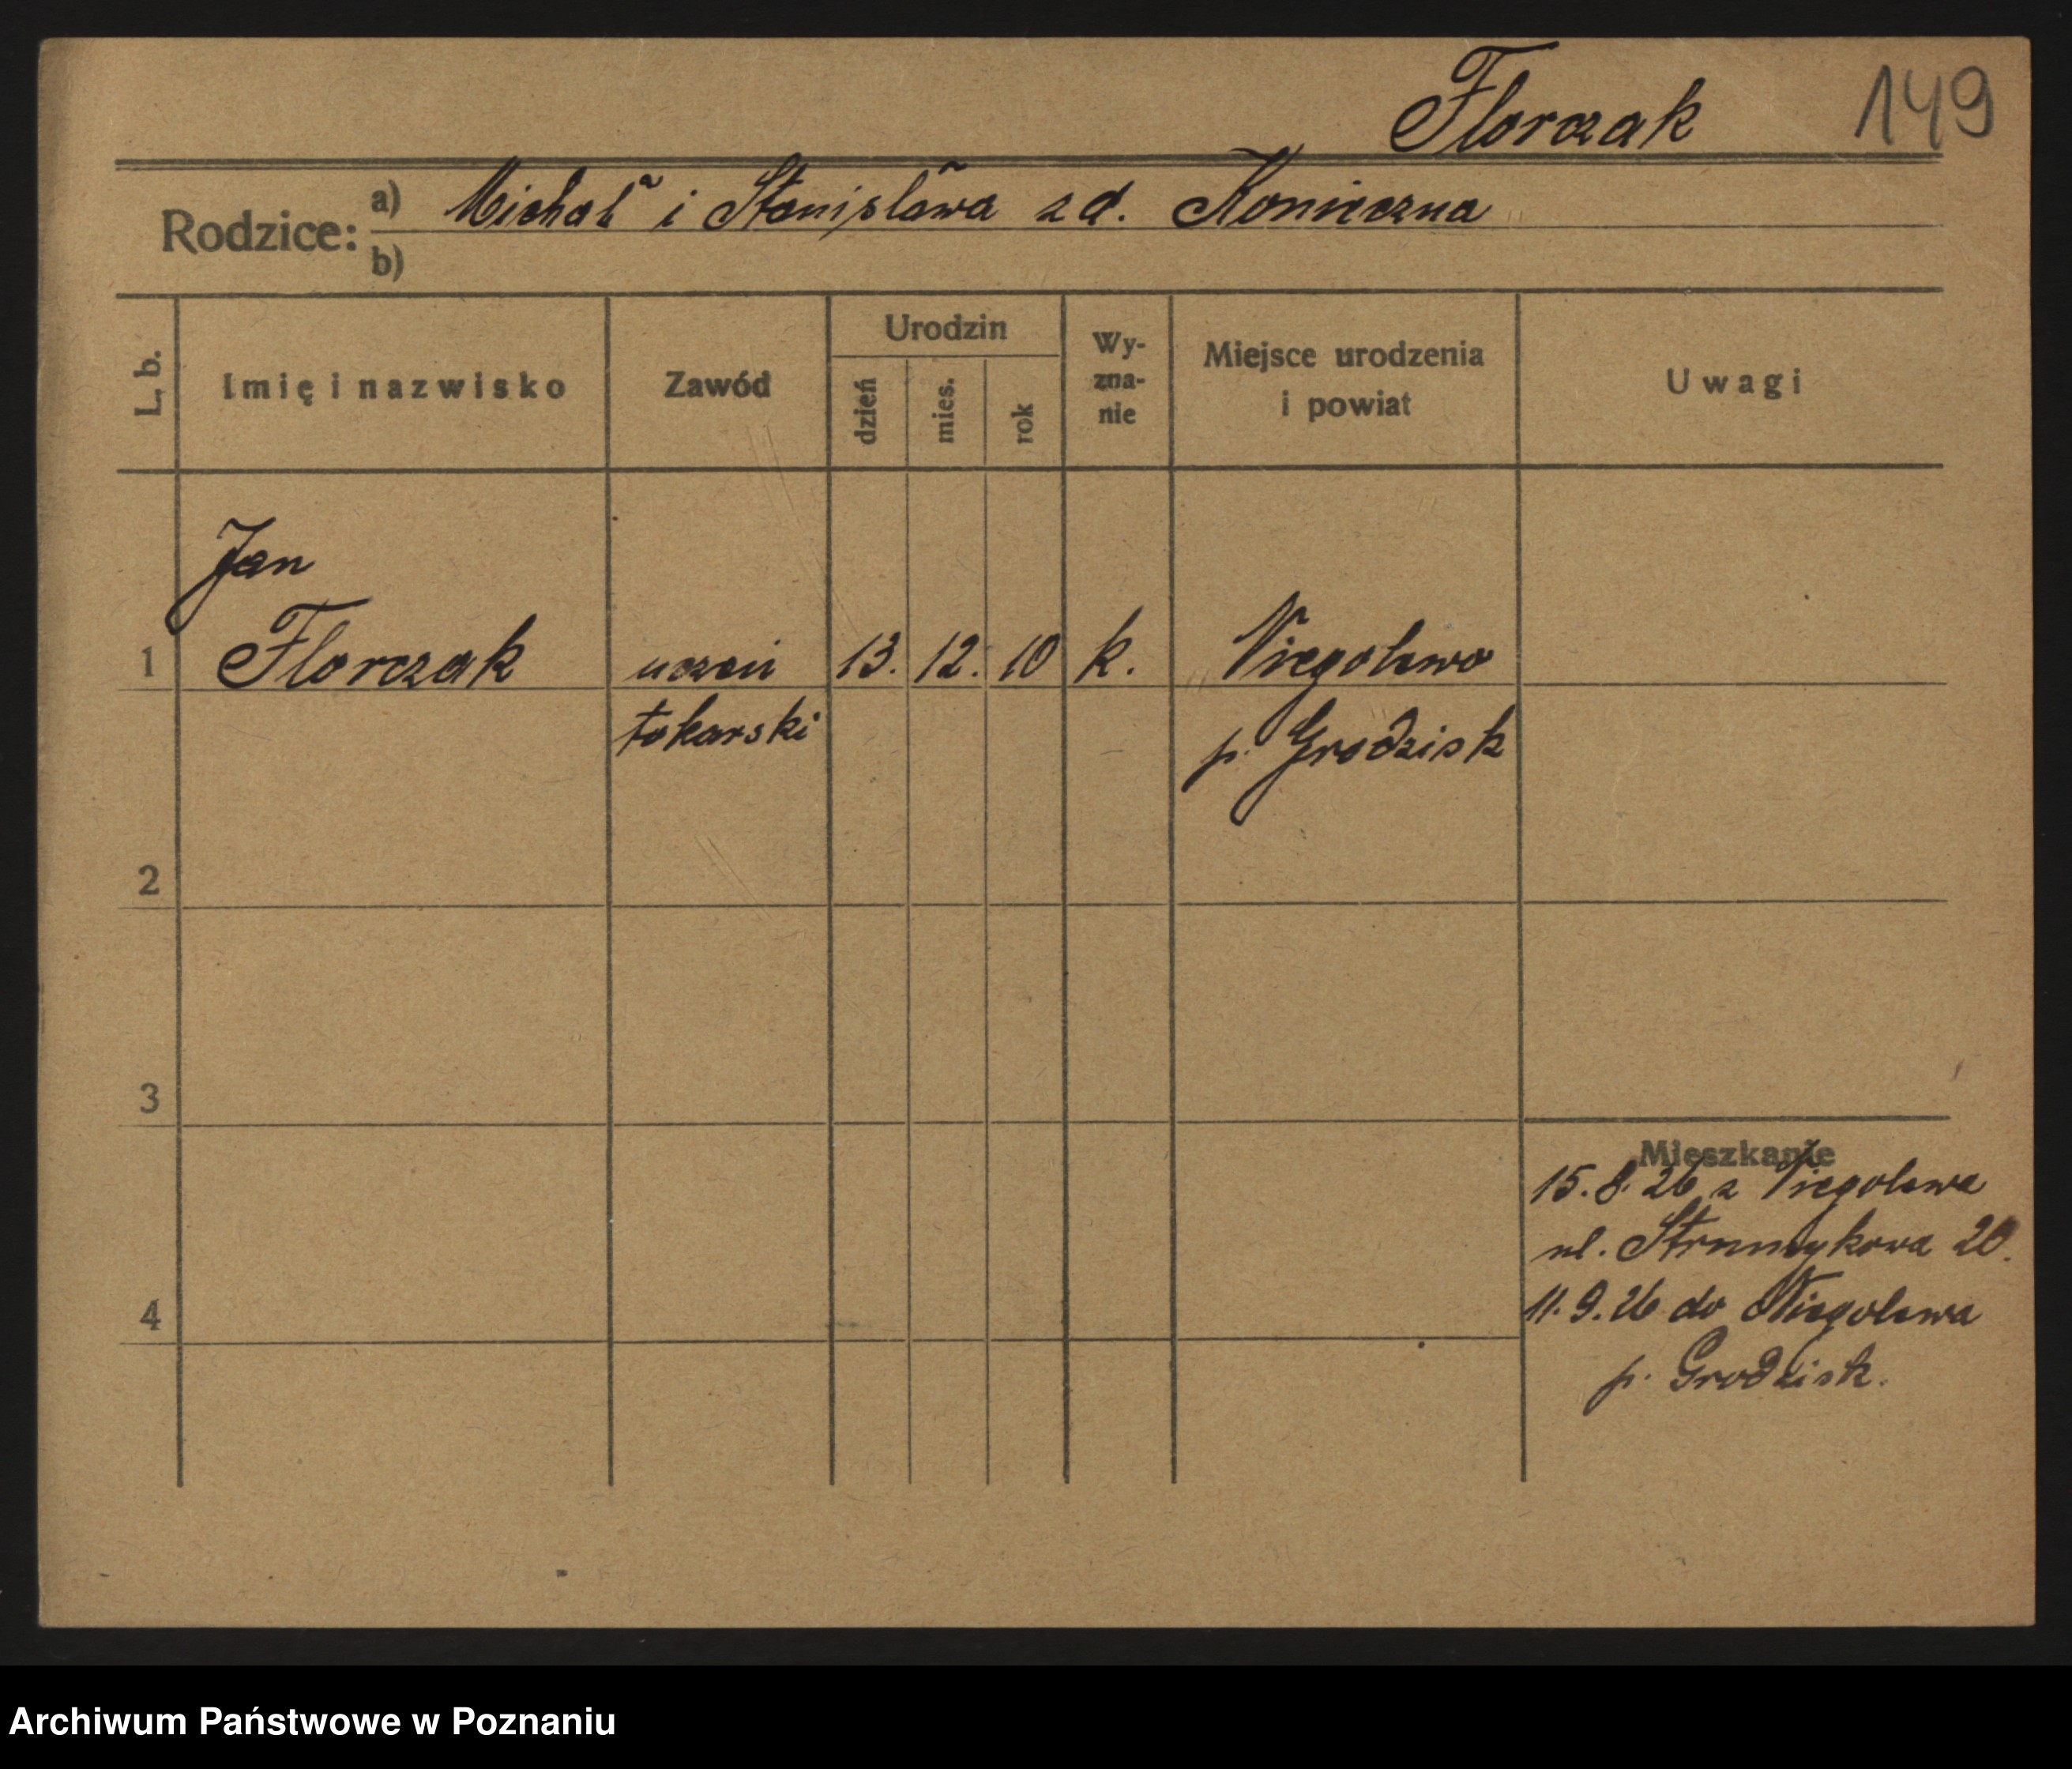 Florczak 149
Rodzice: a) Michał i Stanisława z d. Konieczna
b)
L. b. Imię i nazwisko Zawód Urodzin dzień mies. rok Wy-zna-nie Miejsce urodzenia i powiat Uwagi
Jan
1 Florczak uczeń 13. 12. 10 k. Niegolewo
tokarski p. Grodzisk
2
3
Mieszkanie
15. 8. 26 z Niegolewa
ul. Strumykowa 20.
4 11. 9. 26 do Niegolewa
p. Grodzisk.
Archiwum Państwowe w Poznaniu